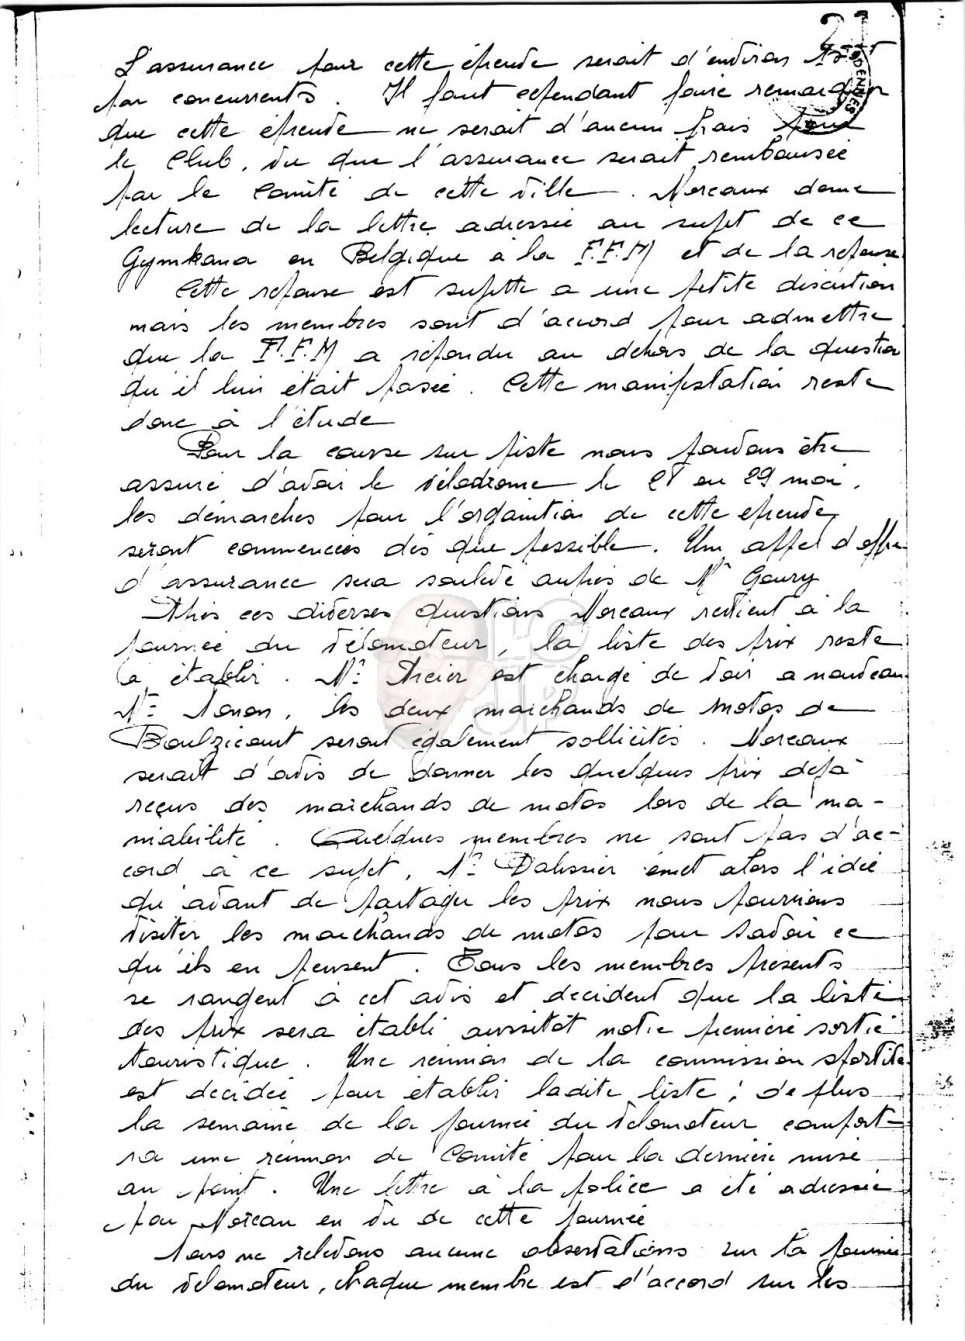 21
L'assurance pour cette épreuve serait d'environ
par concurrents. Il faut cependant faire remarquer
ARDENNES
que cette épreuve ne serait d'aucun frais pour
le Club, vu que l'assurance serait remboursée
par le Comité de cette ville. Noreaux donne
lecture de la lettre adressée au sujet de ce
Gymkana en Belgique à la F.F.M et de la réponse.
Cette reponse est sujette a une petite discution
mais les membres sont d'accord pour admettre
que la F.F.M a répondu au dehors de la question
qu'il lui était posée. Cette manifestation reste
donc à l'étude
Pour la course sur piste nous pouvons être
assuré d'avoir le vélodrome le 28 ou 29 mai,
les démarches pour l'organition de cette epreuve
seront commencées dès que possible. Un appel d'offre
d'assurance sera soulevé auprès de Mr Goury
Après ces diverses questions Noreaux revient à la
journée du vélomoteur, la liste des prix reste
à établir. Mr est chargé de voir a nouveau
Mr les deux marchands de motos de
Boulzicourt seront également sollicités. Noreaux
serait d'avis de donner les quelques prix déjà
reçus des marchands de motos lors de la ma-
niabilité. Quelques membres ne sont pas d'ac-
cord à ce sujet, Mr Dalissier émet alors l'idée
qu'avant de partager les prix nous pourrions
visiter les marchands de motos pour savoir ce
qu'ils en pensent. Tous les membres présents
se rangent à cet avis et décident que la liste
des prix sera établi aussitôt notre première sortie
touristique. Une réunion de la commission sportive
est décidée pour établir ladite liste; de plus
la semaine de la journée du vélomoteur comport-
ra une réunion de Comité pour la dernière mise
au point. Une lettre à la police a été adressée
par Noreau en vu de cette journée
Nous ne relevons aucune observations sur la journée
du vélomoteur, chaque membre est d'accord sur les
LCJP